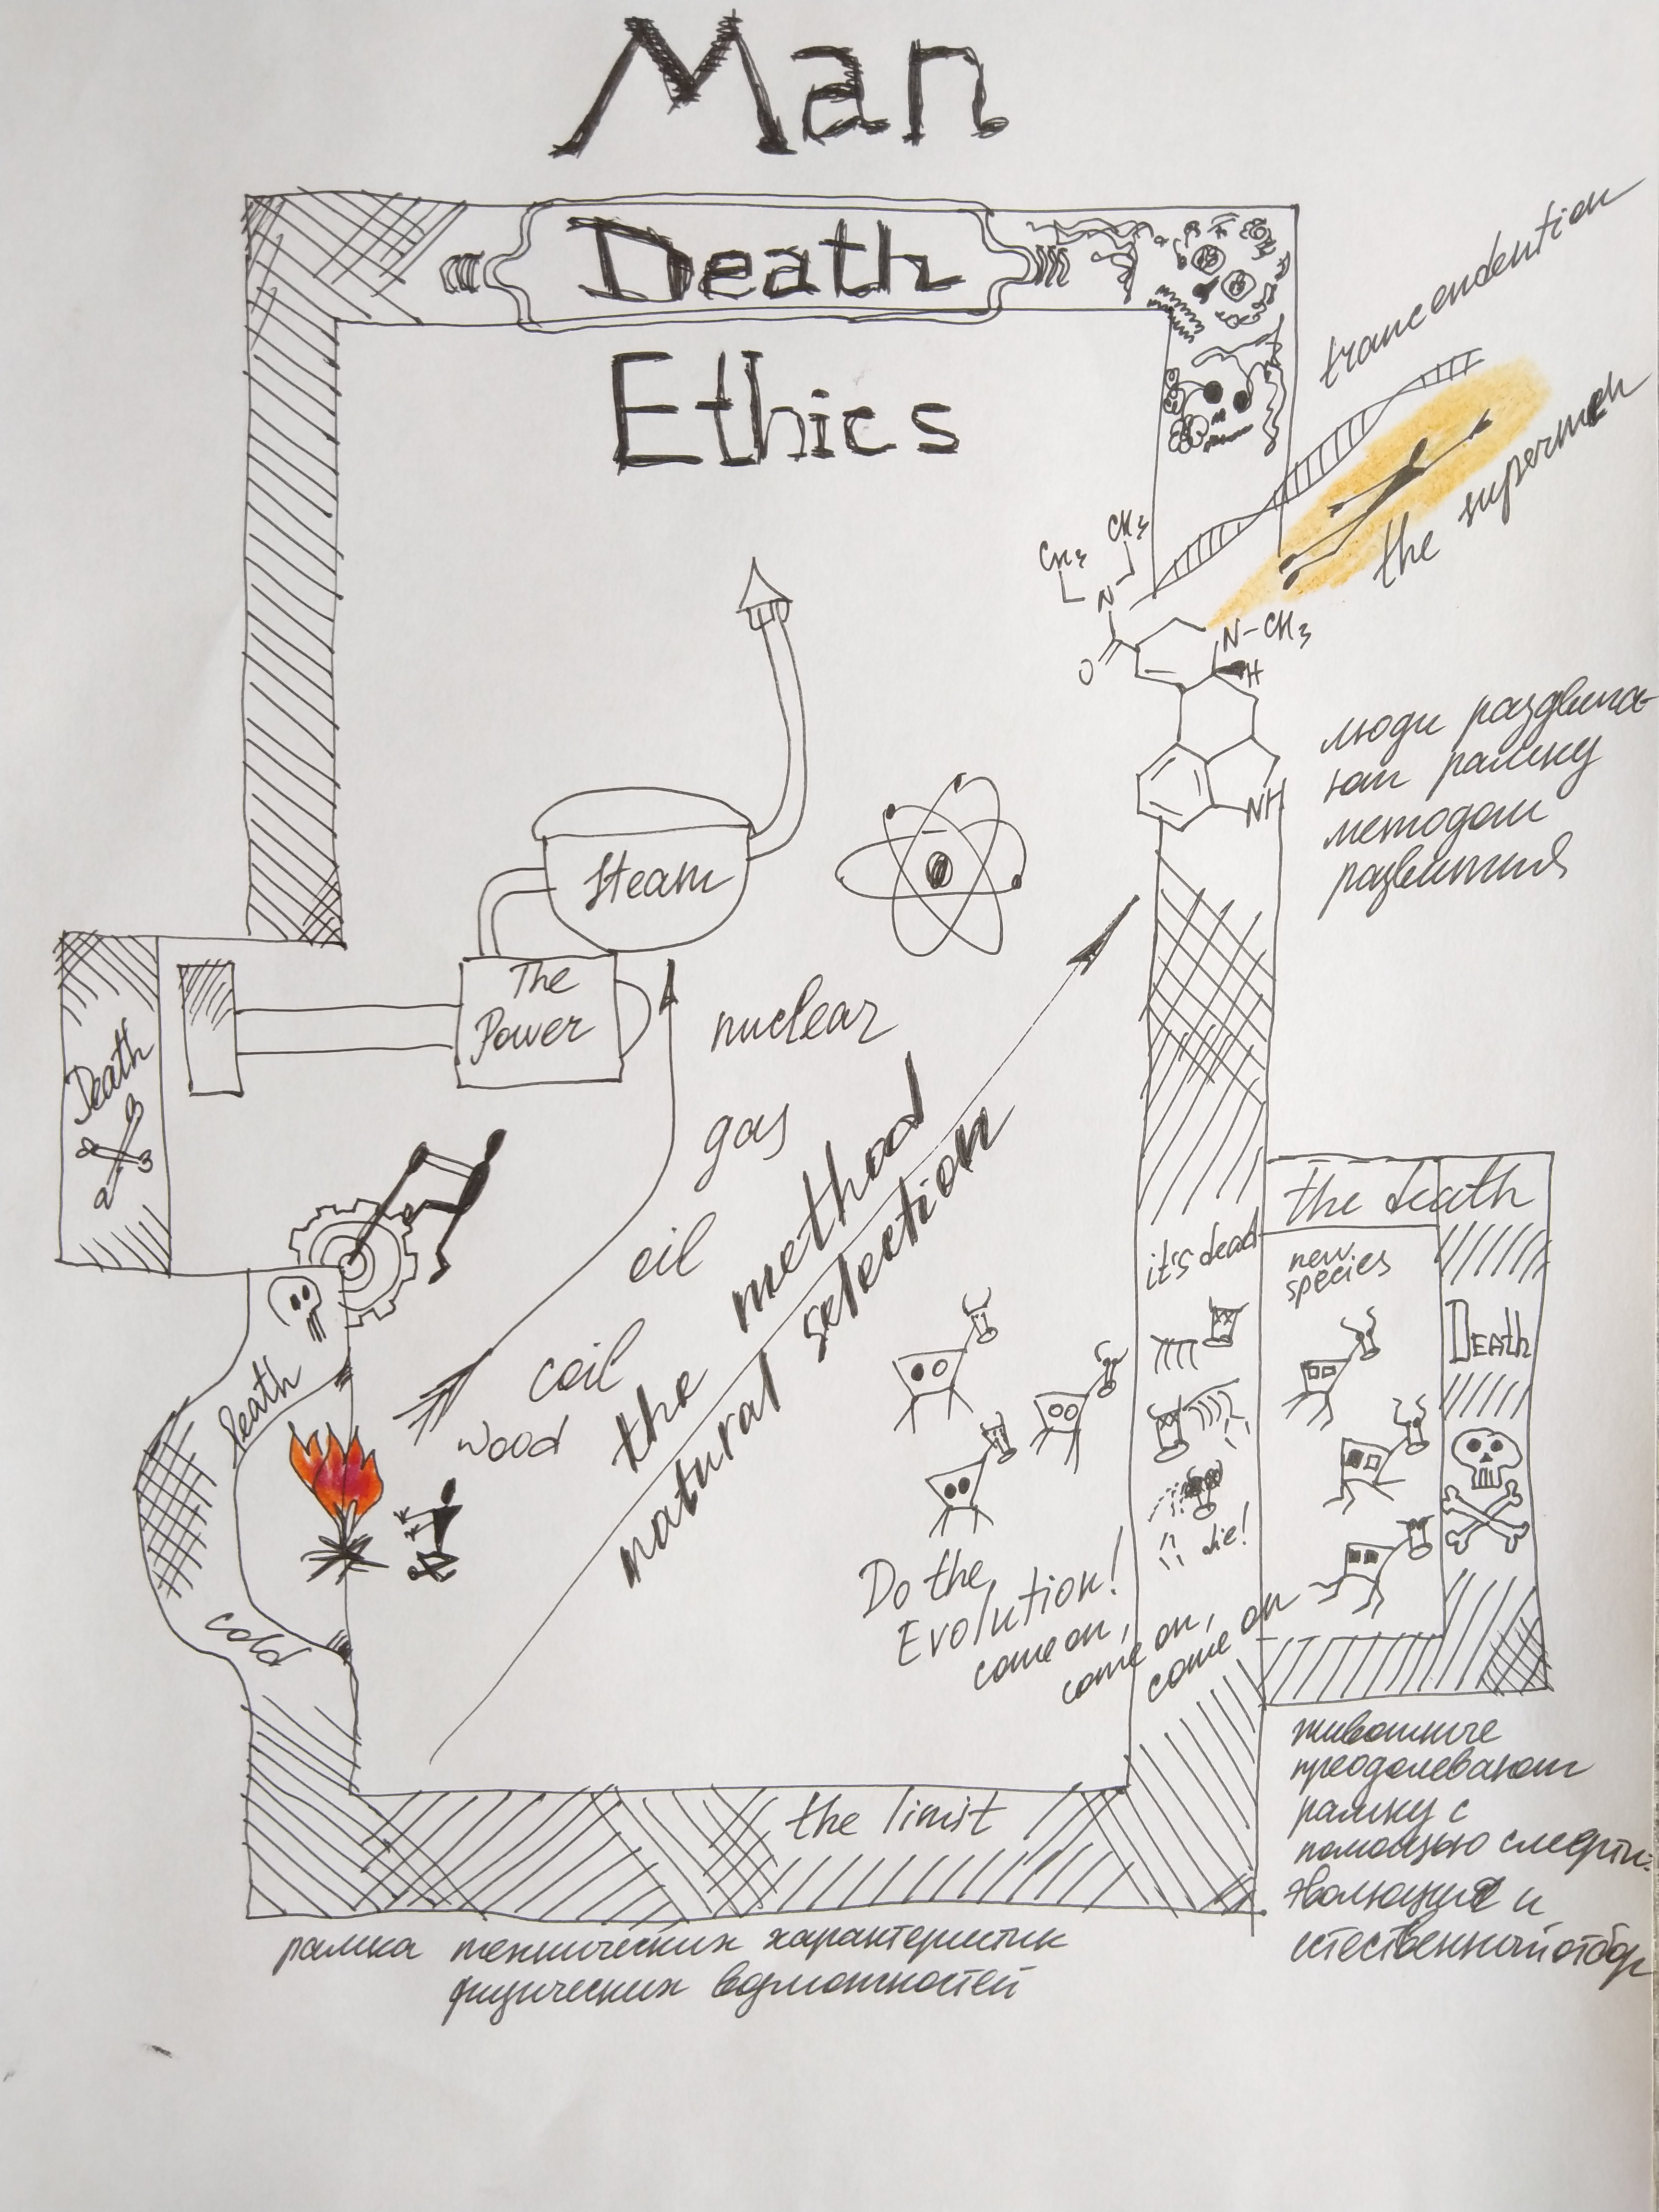 Man
Death
Ethics
trancendention
the supermen
CH3
CH3
N
O
N-CH3
H
NH
люди раздвига-
ют рамку
методом
развития
Steam
The
Power
Death
nuclear
gas
oil
coil
wood
the methood
natural selection
death
cold
it's dead
the death
new
species
Death
die!
Do the
Evolution!
come on,
come on,
come on
the limit
животные
преодолевают
рамку с
помощью смерти:
эволюция и
естественный отбор
рамка технических характеристик
физических возможностей